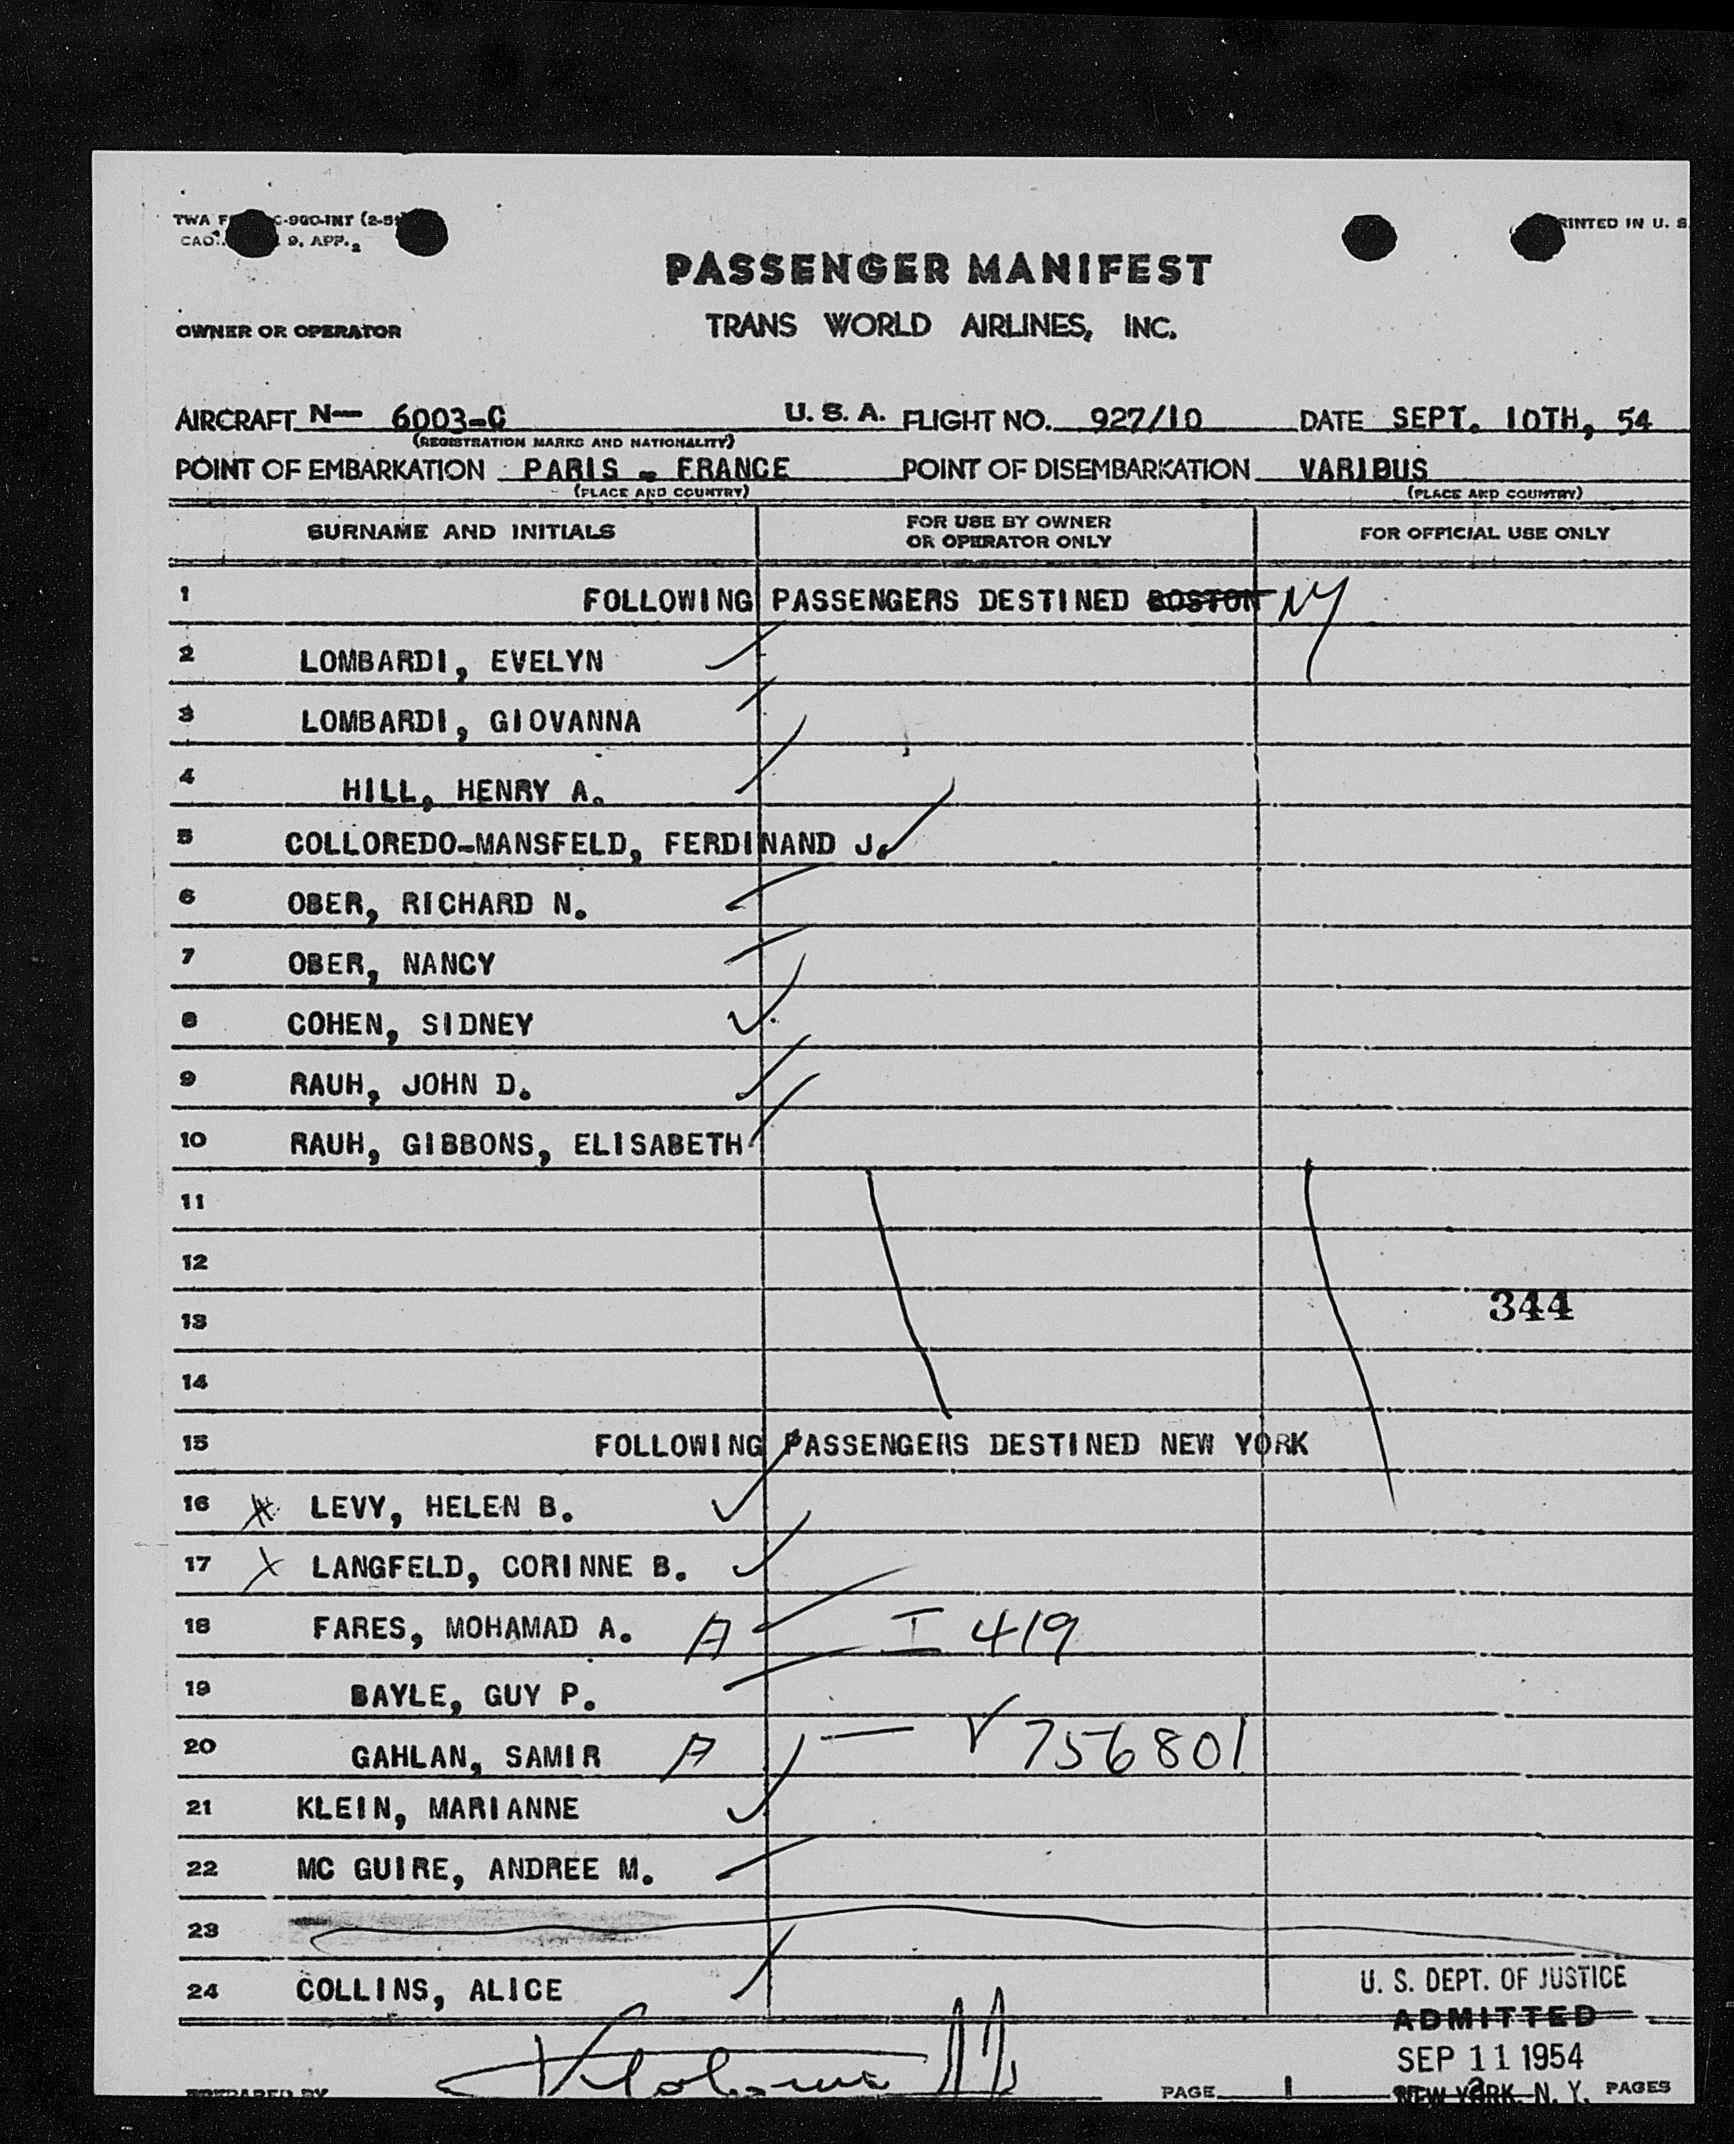 TWA F C-900-INT (2-5
CAO. 9, APP. 2
PRINTED IN U. S.
PASSENGER MANIFEST
OWNER OR OPERATOR
TRANS WORLD AIRLINES, INC.
AIRCRAFT N— 6003-C U. S. A. FLIGHT NO. 927/10 DATE SEPT. 10TH, 54
(REGISTRATION MARKS AND NATIONALITY)
POINT OF EMBARKATION PARIS - FRANCE POINT OF DISEMBARKATION VARIOUS
(PLACE AND COUNTRY) (PLACE AND COUNTRY)
SURNAME AND INITIALS FOR USE BY OWNER OR OPERATOR ONLY FOR OFFICIAL USE ONLY
1 FOLLOWING PASSENGERS DESTINED BOSTON NY
2 LOMBARDI, EVELYN
3 LOMBARDI, GIOVANNA
4 HILL, HENRY A.
5 COLLOREDO-MANSFELD, FERDINAND J.
6 OBER, RICHARD N.
7 OBER, NANCY
8 COHEN, SIDNEY
9 RAUH, JOHN D.
10 RAUH, GIBBONS, ELISABETH
11
12
13 344
14
15 FOLLOWING PASSENGERS DESTINED NEW YORK
16 LEVY, HELEN B.
17 X LANGFELD, CORINNE B.
18 FARES, MOHAMAD A. A I 419
19 BAYLE, GUY P.
20 GAHLAN, SAMIR A — V 756801
21 KLEIN, MARIANNE
22 MC GUIRE, ANDREE M.
23
24 COLLINS, ALICE
U. S. DEPT. OF JUSTICE
ADMITTED
SEP 11 1954
NEW YORK, N. Y.
PREPARED BY PAGE 1 PAGES